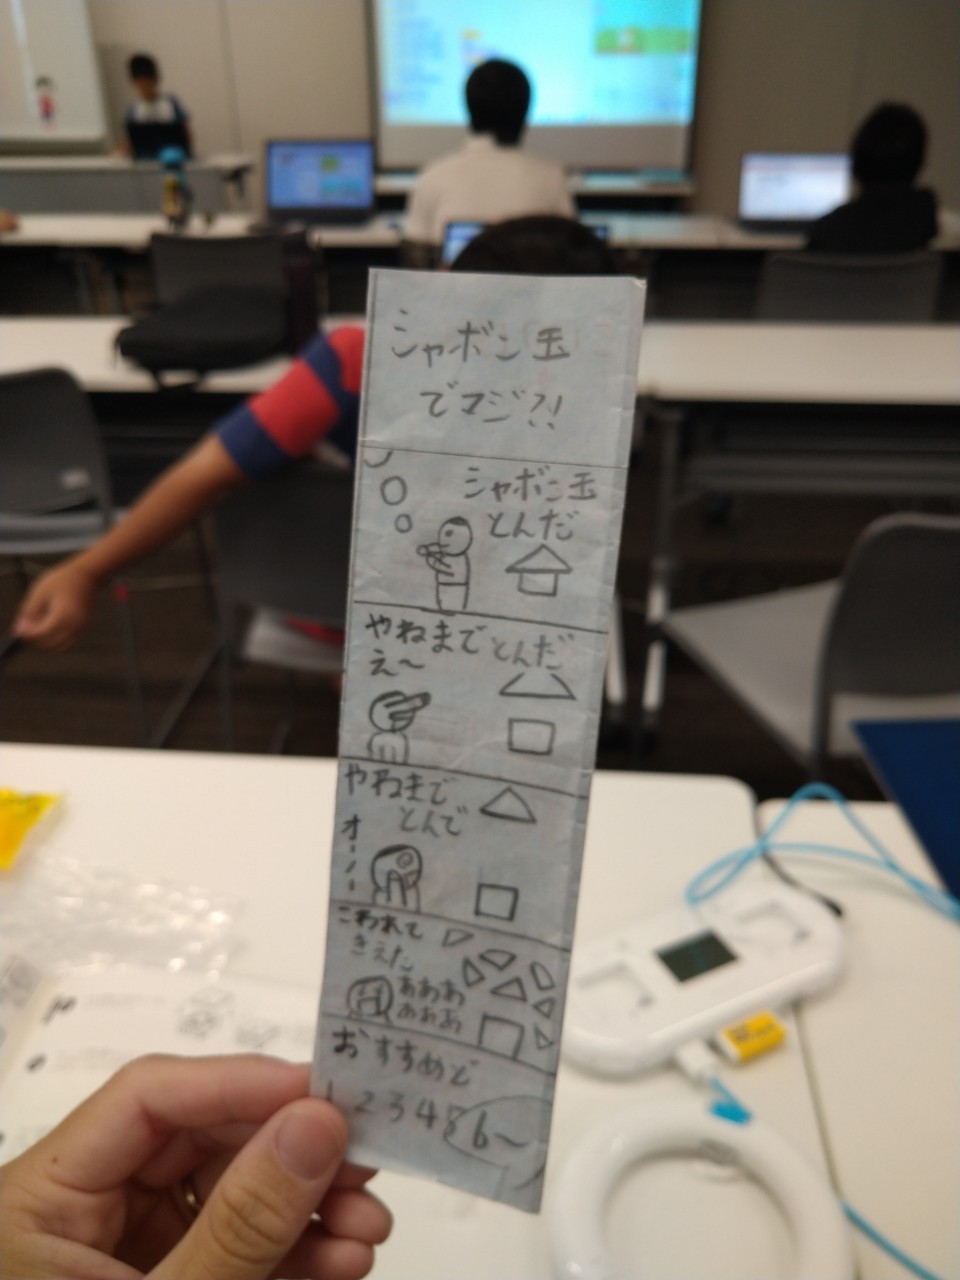 シャボン玉
でマジ?!
シャボン玉
とんだ
やねまでとんだ
え～
やねまで
とんで
オーノー
こわれて
きえた
あああ
あああ
おすすめど
1 2 3 4 5 6～